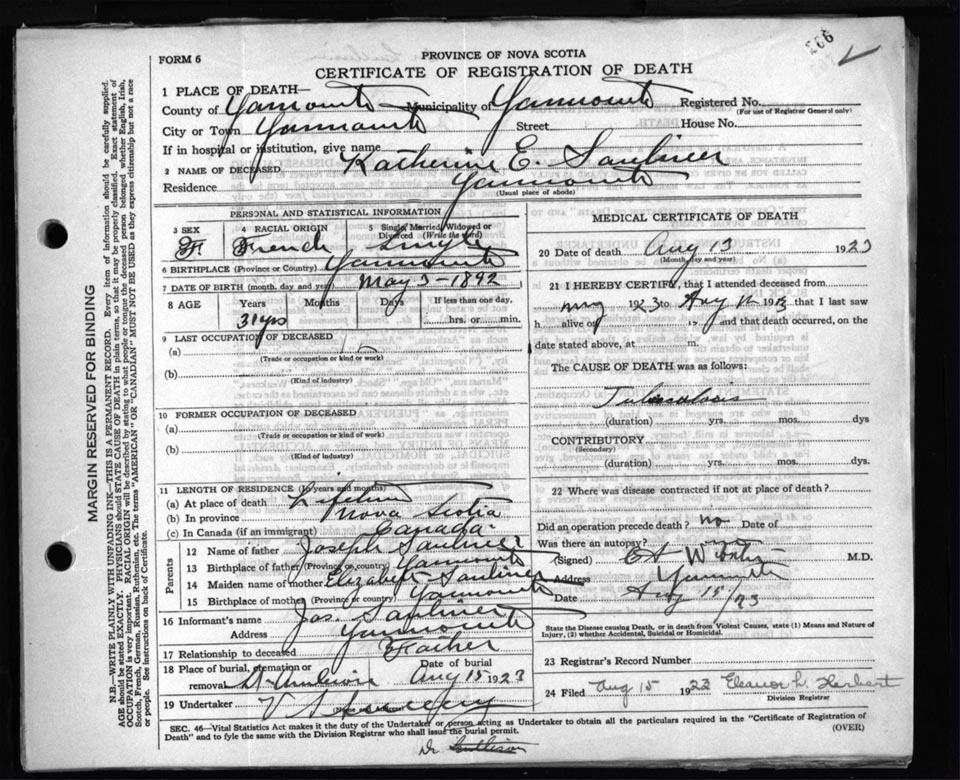 FORM 6
PROVINCE OF NOVA SCOTIA
CERTIFICATE OF REGISTRATION OF DEATH
1 PLACE OF DEATH—
County of Yarmouth Municipality of Yarmouth Registered No.
(For use of Registrar General only)
City or Town Yarmouth Street House No.
If in hospital or institution, give name
2 NAME OF DECEASED Katherine E. Saulnier
Residence Yarmouth
(Usual place of abode)
PERSONAL AND STATISTICAL INFORMATION
3 SEX 4 RACIAL ORIGIN 5 Single, Married, Widowed or Divorced (Write the word)
F French Single
6 BIRTHPLACE (Province or Country) Yarmouth
7 DATE OF BIRTH (month, day and year) May 3-1892
8 AGE Years Months Days If less than one day,
31 yrs hrs. or min.
9 LAST OCCUPATION OF DECEASED
(a)
(Trade or occupation or kind of work)
(b)
(Kind of industry)
10 FORMER OCCUPATION OF DECEASED
(a)
(Trade or occupation or kind of work)
(b)
(Kind of industry)
11 LENGTH OF RESIDENCE (In years and months)
(a) At place of death Lifetime
(b) In province Nova Scotia
(c) In Canada (if an immigrant) Canada
Parents
12 Name of father Joseph Saulnier
13 Birthplace of father (Province or country) Yarmouth
14 Maiden name of mother Elizabeth Saulnier
15 Birthplace of mother (Province or country) Yarmouth
16 Informant's name Jos. Saulnier
Address Yarmouth
17 Relationship to deceased Father
18 Place of burial, cremation or removal Date of burial Aug 15 1923
19 Undertaker
MEDICAL CERTIFICATE OF DEATH
20 Date of death Aug 13 1923
(Month, day and year)
21 I HEREBY CERTIFY, that I attended deceased from
1923 to Aug 1923 that I last saw
h alive on 19 and that death occurred, on the
date stated above, at m.
The CAUSE OF DEATH was as follows:
Tuberculosis
(duration) yrs. mos. dys
CONTRIBUTORY
(Secondary)
(duration) yrs. mos. dys.
22 Where was disease contracted if not at place of death?
Did an operation precede death? no Date of
Was there an autopsy?
(Signed) M.D.
Address Yarmouth
Date Aug 15/23
State the Disease causing Death, or in death from Violent Causes, state (1) Means and Nature of Injury, (2) whether Accidental, Suicidal or Homicidal.
23 Registrar's Record Number
24 Filed Aug 15 1923 Eleanor L. Herbert
Division Registrar
SEC. 46—Vital Statistics Act makes it the duty of the Undertaker or person acting as Undertaker to obtain all the particulars required in the "Certificate of Registration of
Death" and to fyle the same with the Division Registrar who shall issue the burial permit. (OVER)
Dr
MARGIN RESERVED FOR BINDING
N.B.—WRITE PLAINLY WITH UNFADING INK—THIS IS A PERMANENT RECORD. Every item of information should be carefully supplied.
AGE should be stated EXACTLY. PHYSICIANS should STATE CAUSE OF DEATH in plain terms, so that it may be properly classified. Exact statement of
OCCUPATION is very important. RACIAL ORIGIN will be described by stating to what people or tongue the deceased person belonged whether English, Irish,
Scotch, French, German, Russian, Ruthenian, etc. The terms "AMERICAN" OR "CANADIAN" MUST NOT BE USED as they express citizenship but not a race
or people. See instructions on back of Certificate.